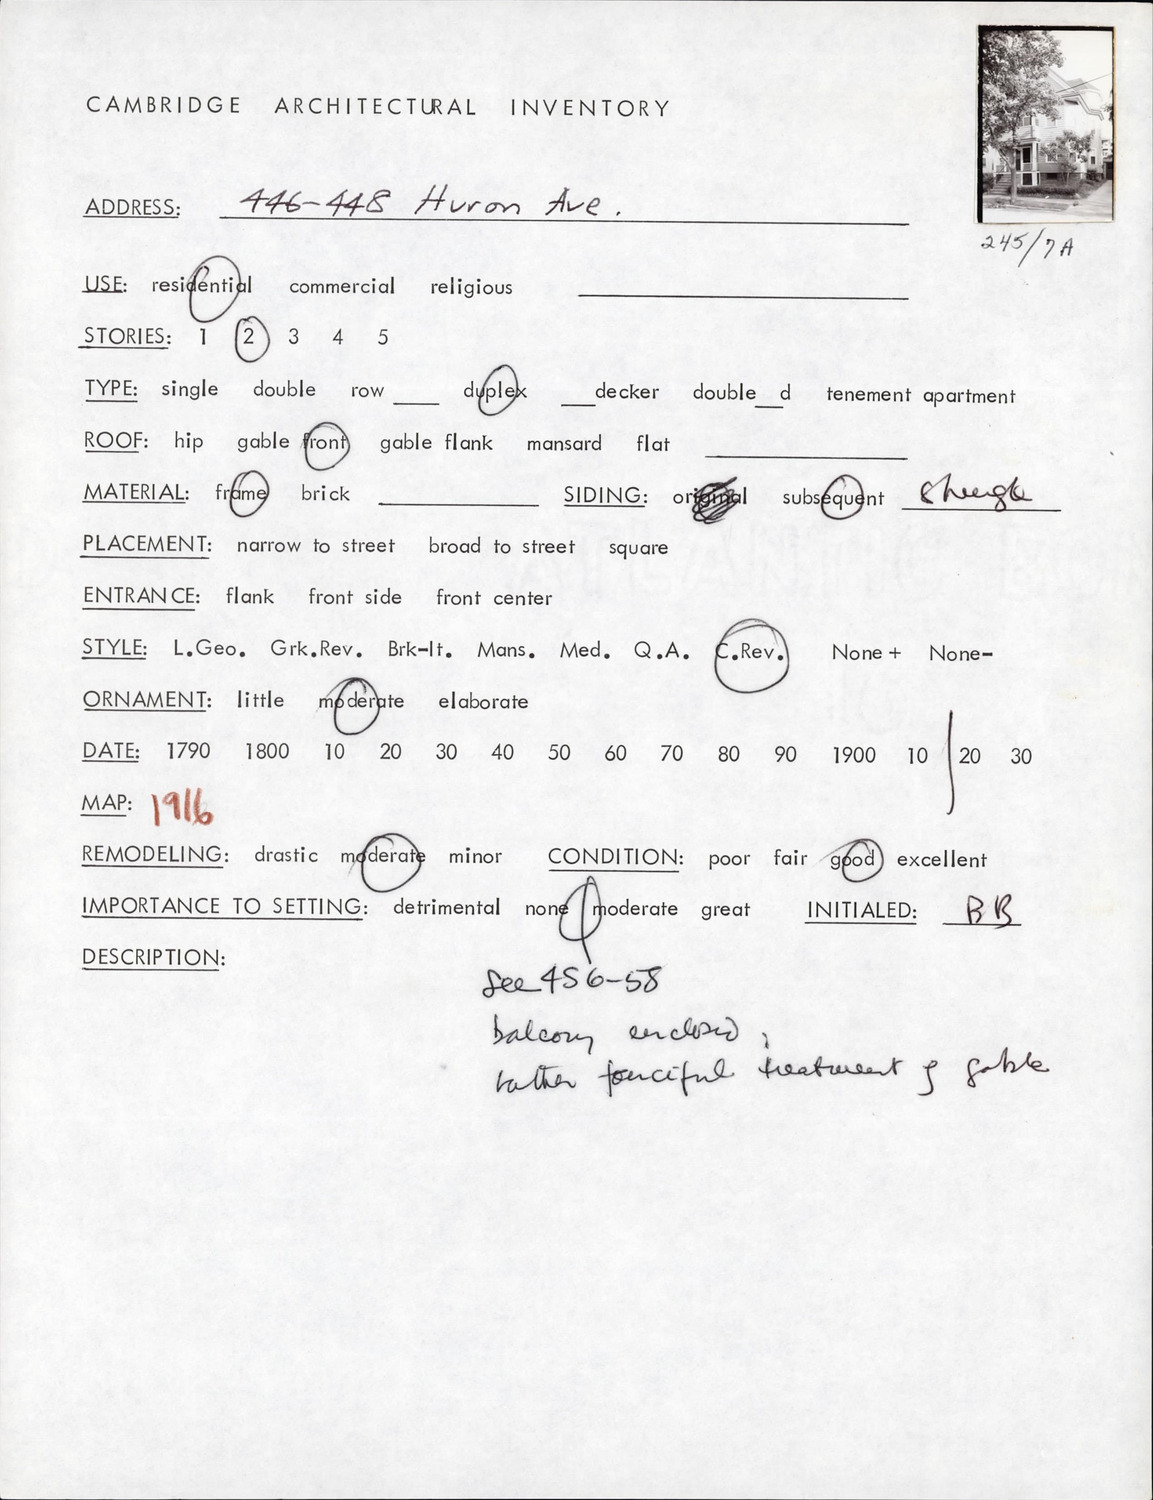 CAMBRIDGE ARCHITECTURAL INVENTORY
ADDRESS: 446-448 Huron Ave.
245/7A
USE: residential commercial religious
STORIES: 1 2 3 4 5
TYPE: single double row ___ duplex ___decker double__d tenement apartment
ROOF: hip gable front gable flank mansard flat
MATERIAL: frame brick SIDING: original subsequent shingle
PLACEMENT: narrow to street broad to street square
ENTRANCE: flank front side front center
STYLE: L.Geo. Grk.Rev. Brk-It. Mans. Med. Q.A. C.Rev. None+ None-
ORNAMENT: little moderate elaborate
DATE: 1790 1800 10 20 30 40 50 60 70 80 90 1900 10 20 30
MAP: 1916
REMODELING: drastic moderate minor CONDITION: poor fair good excellent
IMPORTANCE TO SETTING: detrimental none moderate great INITIALED: BB
DESCRIPTION:
See 456-58
balcony enclosed;
rather fanciful treatment of gable